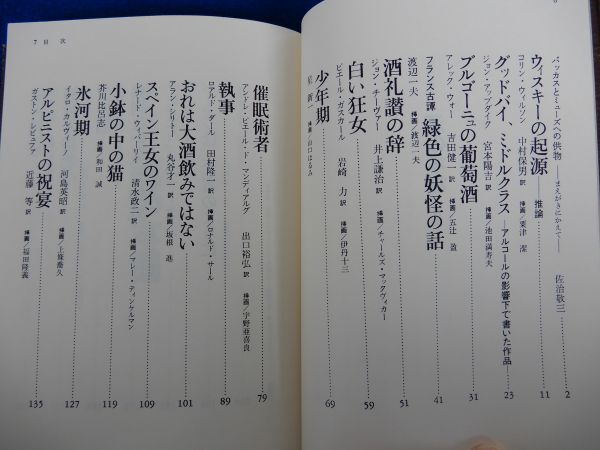 6
バッカスとミューズへの供物 ——まえがきにかえて—— 佐治敬三 2
ウィスキーの起源——推論 11
コリン・ウィルソン 中村保男 訳 挿画／粟津 潔
グッドバイ、ミドルクラス——アルコールの影響下で書いた作品 23
ジョン・アップダイク 宮本陽吉 訳 挿画／池田満寿夫
ブルゴーニュの葡萄酒 31
アレック・ウォー 吉田健一 訳 挿画／五辻 盈
フランス古譚 緑色の妖怪の話 41
渡辺一夫 挿画／渡辺一夫
酒礼讃の辞 51
ジョン・チーヴァー 井上謙治 訳 挿画／チャールズ・マックヴィカー
白い狂女 59
ピエール・ガスカール 岩崎 力 訳 挿画／伊丹十三
少年期 69
星新一 挿画／山口はるみ
催眠術者 79
アンドレ・ピエール・ド・マンディアルグ 出口裕弘 訳 挿画／宇野亜喜良
執事 89
ロアルド・ダール 田村隆一 訳 挿画／ロナルド・サール
おれは大酒飲みではない 101
アラン・シリトー 丸谷才一 訳 挿画／坂根 進
スペイン王女のワイン 109
レナード・ウィバーリイ 清水政二 訳 挿画／マレー・ティンケルマン
小鉢の中の猫 119
芥川比呂志 挿画／和田 誠
氷河期 127
イタロ・カルヴィーノ 河島英昭 訳 挿画／上條喬久
アルピニストの祝宴 135
ガストン・レビュファ 近藤 等 訳 挿画／福田隆義
7 目 次